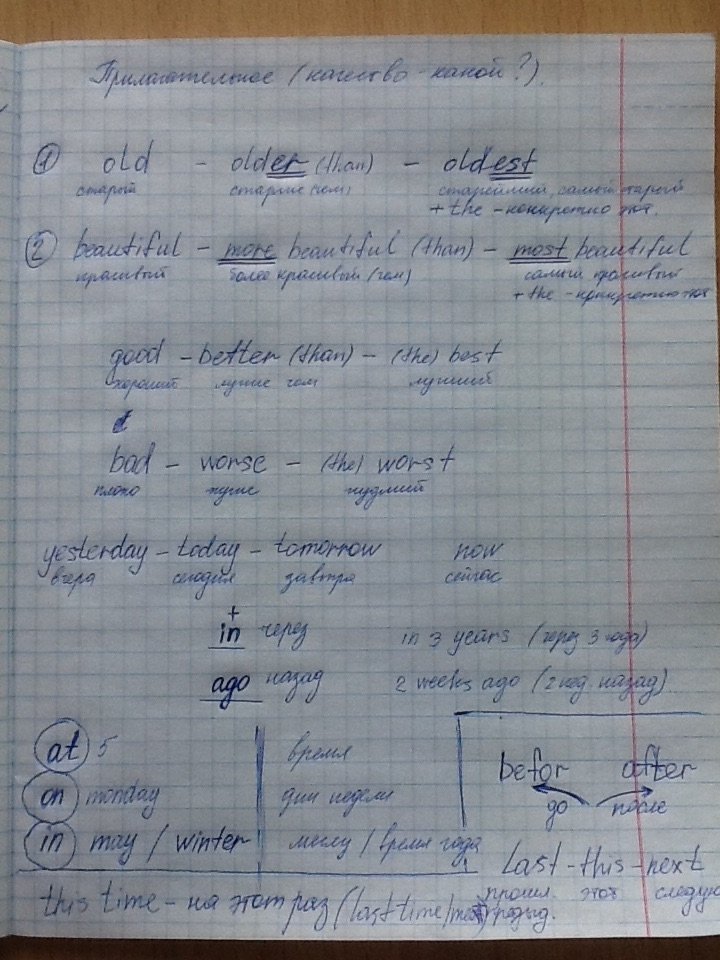 Прилагательное (качество - какой?).
① old - older (than) - oldest
старый старше (чем) старейший, самый старый
+ the - конкретно тот.
② beautiful - more beautiful (than) - most beautiful
красивый более красивый (чем) самый красивый
+ the - конкретно тот
good - better (than) - (the) best
хороший лучше чем лучший
bad - worse - (the) worst
плохо хуже худший
yesterday - today - tomorrow now
вчера сегодня завтра сейчас
+
in через in 3 years (через 3 года)
ago назад 2 weeks ago (2 нед. назад)
at 5 время
on monday дни недели
in may / winter месяц / время года
befor after
до после
Last - this - next
прошл. этот следую
this time - на этот раз (last time/ предыд.